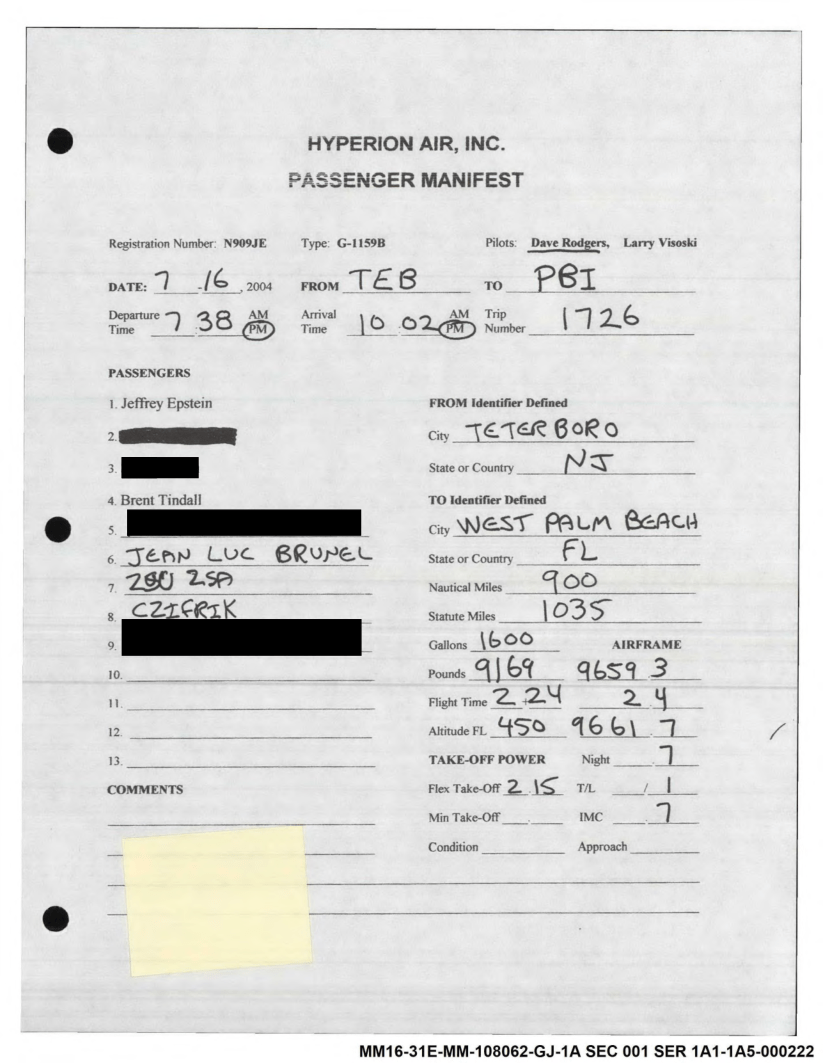 HYPERION AIR, INC.
PASSENGER MANIFEST
Registration Number: N909JE Type: G-1159B Pilots: Dave Rodgers, Larry Visoski
DATE: 7 -16, 2004 FROM TEB TO PBI
Departure Time 7 38 AM PM Arrival Time 10 02 AM PM Trip Number 1726
PASSENGERS
1. Jeffrey Epstein
2.
3.
4. Brent Tindall
5.
6. JEAN LUC BRUNEL
7. ZSA
8. CZIFRIK
9.
10.
11.
12.
13.
COMMENTS
FROM Identifier Defined
City TETERBORO
State or Country NJ
TO Identifier Defined
City WEST PALM BEACH
State or Country FL
Nautical Miles 900
Statute Miles 1035
Gallons 1600 AIRFRAME
Pounds 9169 9659 3
Flight Time 2 24 2 4
Altitude FL 450 9661 .7
TAKE-OFF POWER Night .7
Flex Take-Off 2.15 T/L / 1
Min Take-Off . IMC .7
Condition Approach
MM16-31E-MM-108062-GJ-1A SEC 001 SER 1A1-1A5-000222